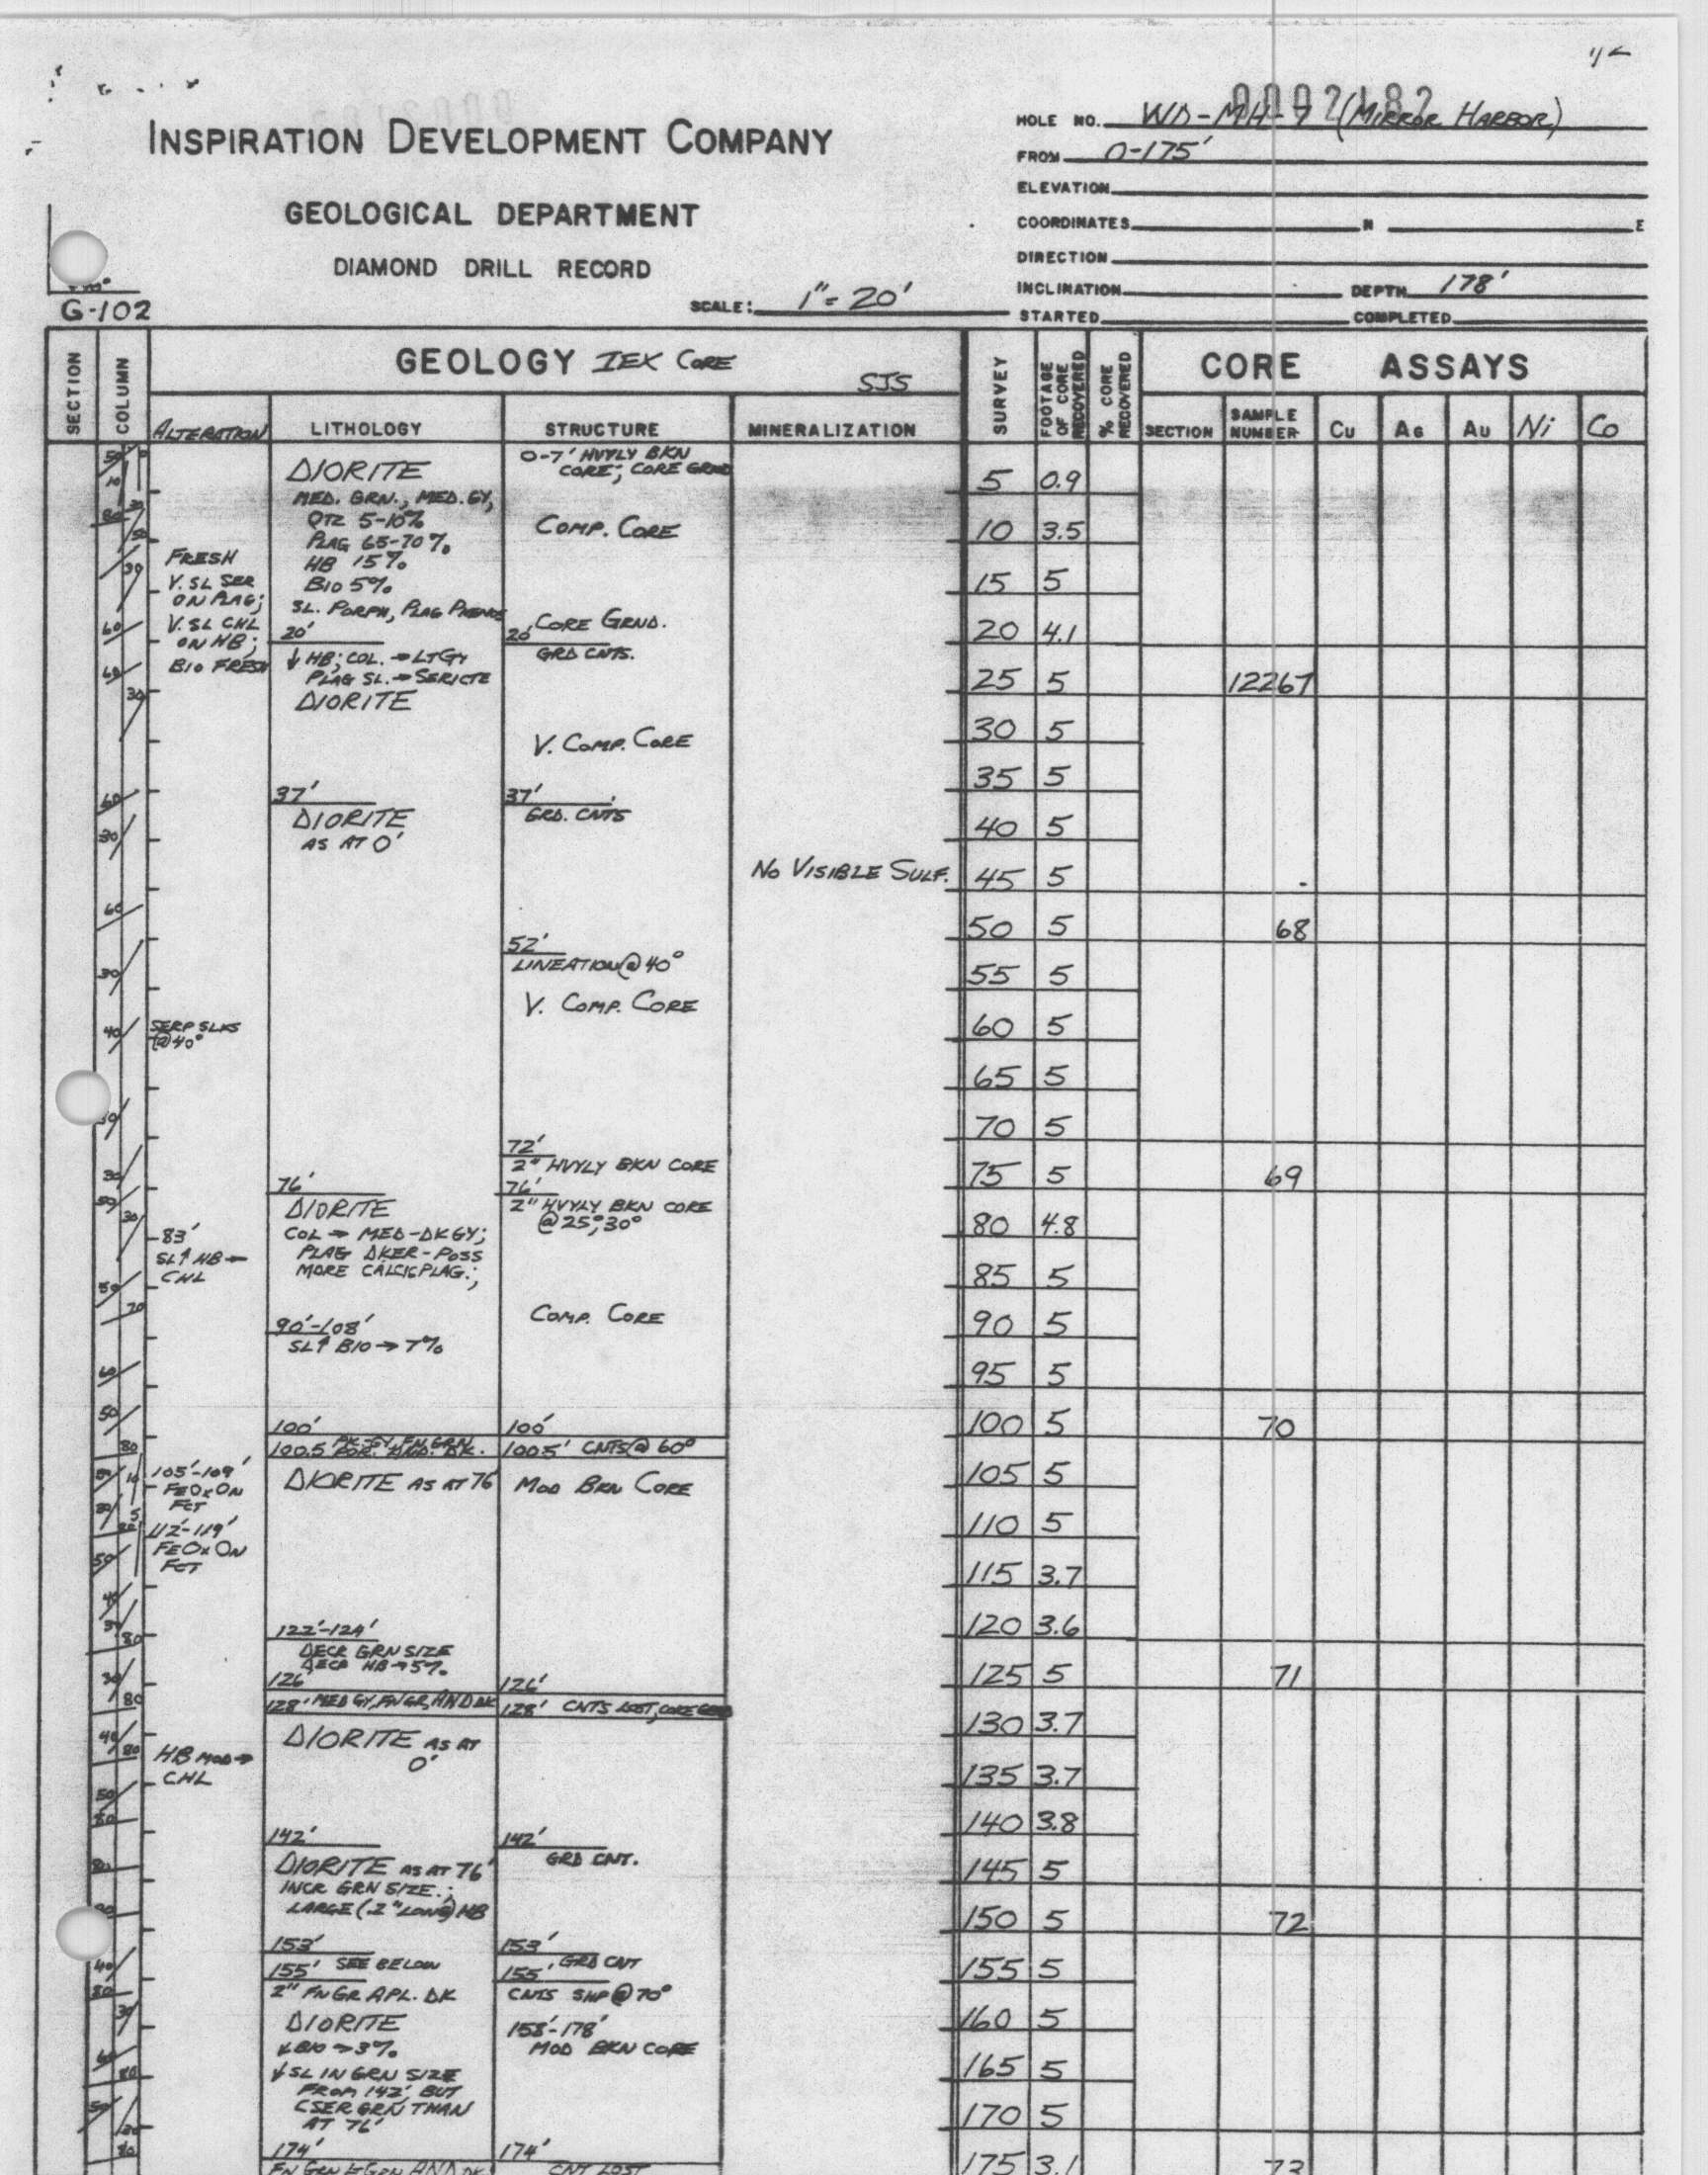 0002182
INSPIRATION DEVELOPMENT COMPANY
GEOLOGICAL DEPARTMENT
DIAMOND DRILL RECORD
G-102
SCALE: 1"= 20'
HOLE NO. WD-MH-7 (MIRROR HARBOR)
FROM 0-175'
ELEVATION
COORDINATES N E
DIRECTION
INCLINATION DEPTH 178'
STARTED COMPLETED
SECTION
COLUMN
GEOLOGY IEX CORE
SJS
ALTERATION
LITHOLOGY
STRUCTURE
MINERALIZATION
SURVEY
FOOTAGE OF CORE RECOVERED
% CORE RECOVERED
CORE ASSAYS
SECTION
SAMPLE NUMBER
Cu
AG
AU
Ni
Co
FRESH
V. SL SER
ON PLAG;
V. SL CHL
ON HB;
BIO FRESH
SERP SLKS
@40°
83'
SL↑ HB→
CHL
105'-109'
FEOX ON
FCT
112'-119'
FEOX ON
FCT
HB MOD→
CHL
DIORITE
MED. GRN., MED. GY,
QTZ 5-10%
PLAG 65-70%
HB 15%
BIO 5%
SL. PORPH, PLAG PHENOS
20'
↓ HB; COL.→LTGY
PLAG SL.→SERICTE
DIORITE
37'
DIORITE
AS AT 0'
76'
DIORITE
COL→MED-DKGY;
PLAG DKER-POSS
MORE CALCIC PLAG.;
90'-108'
SL↑ BIO→7%
100'
100.5 DK.GY, FN.GRN
POR. AND. DK.
DIORITE AS AT 76
122'-124'
DECR GRN SIZE
DECR HB→5%
126'
128' MED GY, FN GR, AND DK
DIORITE AS AT
0'
142'
DIORITE AS AT 76'
INCR GRN SIZE.;
LARGE (.2" LONG) HB
153'
155' SEE BELOW
2" FN GR APL. DK
DIORITE
↓BIO→3%
↓SL IN GRN SIZE
FROM 142', BUT
CSER GRN THAN
AT 76'
174'
0-7' HVYLY BKN
CORE; CORE GRND
COMP. CORE
CORE GRND.
20'
GRD CNTS.
V. COMP. CORE
37'
GRD. CNTS
52'
LINEATION@40°
V. COMP. CORE
72'
2" HVYLY BKN CORE
76'
2" HVYLY BKN CORE
@25°,30°
COMP. CORE
100'
100.5' CNTS@60°
MOD BKN CORE
126'
128' CNTS LOST, CORE GRND
142'
GRD CNT.
153'
GRD CNT
155'
CNTS SHP@70°
158'-178'
MOD BKN CORE
174'
CNT LOST
NO VISIBLE SULF.
5 0.9
10 3.5
15 5
20 4.1
25 5 12267
30 5
35 5
40 5
45 5
50 5 68
55 5
60 5
65 5
70 5
75 5 69
80 4.8
85 5
90 5
95 5
100 5 70
105 5
110 5
115 3.7
120 3.6
125 5 71
130 3.7
135 3.7
140 3.8
145 5
150 5 72
155 5
160 5
165 5
170 5
175 3.1 73